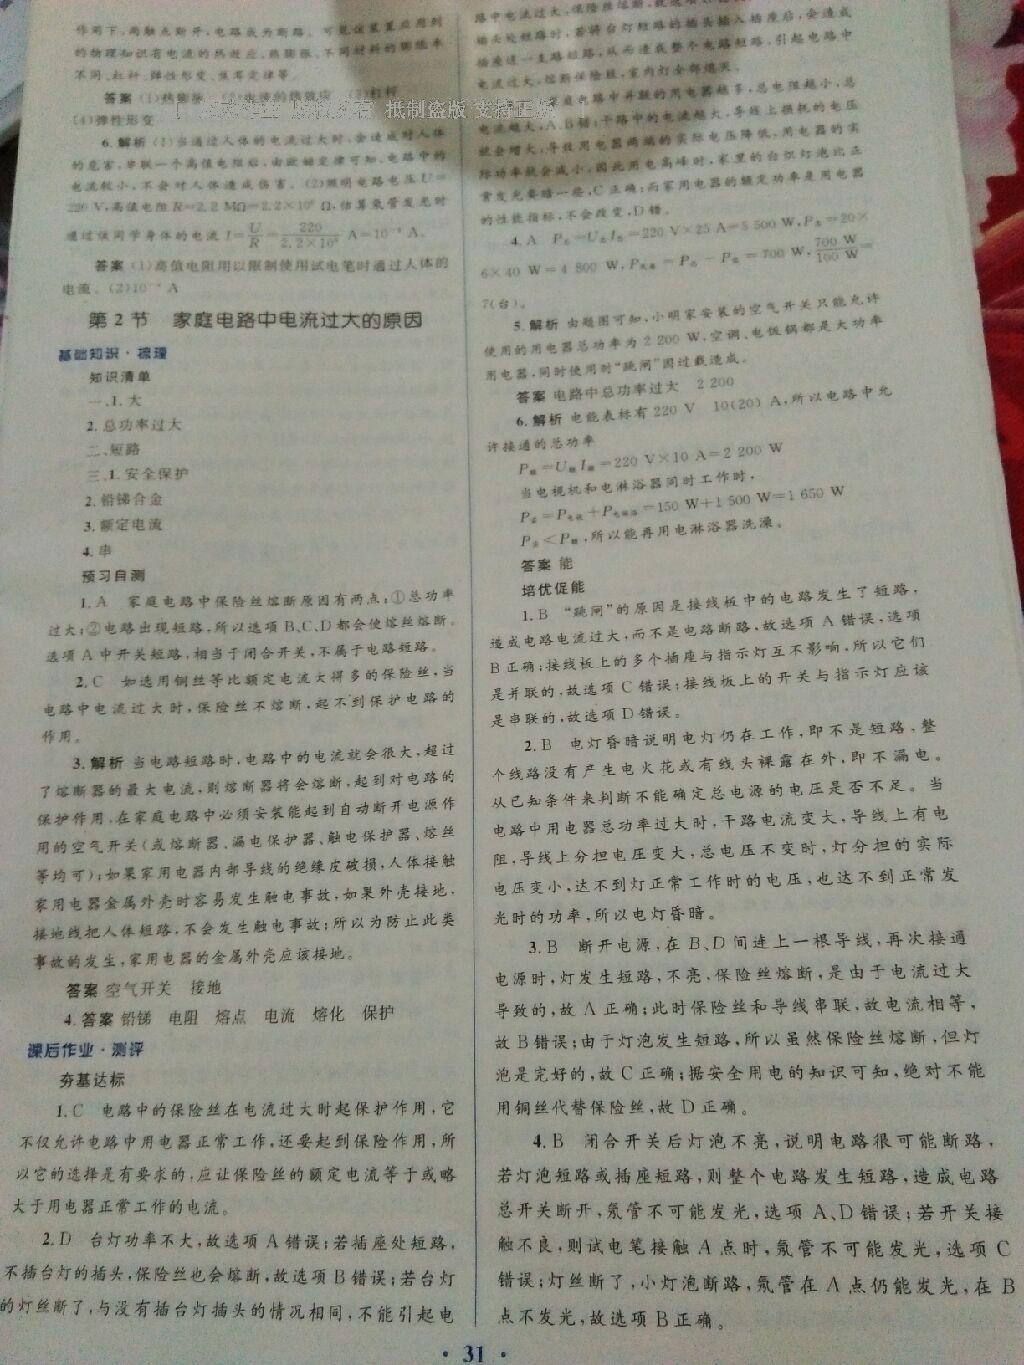 作用下,两触点断开,电路成为断路。可见该装置应用到
的物理知识有电流的热效应、热膨胀、不同材料的膨胀率
不同、杠杆、弹性形变、焦耳定律等。
答案 (1)热膨胀 (2)电流的热效应 (3)杠杆
(4)弹性形变
抵制盗版 支持正版
6.解析 (1)当通过人体的电流过大时,会造成对人体
的危害,串联一个高值电阻后,由欧姆定律可知,电路中的
电流较小,不会对人体造成伤害。(2)照明电路电压U=
220 V,高值电阻R=2.2 MΩ=2.2×10⁶ Ω,估算氖管发光时
通过该同学身体的电流 I=U/R=220/(2.2×10⁶) A=10⁻⁴ A。
答案 (1)高值电阻用以限制使用试电笔时通过人体的
电流。(2)10⁻⁴ A
第2节 家庭电路中电流过大的原因
基础知识·梳理
知识清单
一、1.大
2.总功率过大
二、短路
三、1.安全保护
2.铅锑合金
3.额定电流
4.串
预习自测
1.A 家庭电路中保险丝熔断原因有两点:①总功率
过大;②电路出现短路,所以选项B、C、D都会使熔丝熔断。
选项A中开关短路,相当于闭合开关,不属于电路短路。
2.C 如选用铜丝等比额定电流大得多的保险丝,当
电路中电流过大时,保险丝不熔断,起不到保护电路的
作用。
3.解析 当电路短路时,电路中的电流就会很大,超过
了熔断器的最大电流,则熔断器将会熔断,起到对电路的
保护作用,在家庭电路中必须安装能起到自动断开电源作
用的空气开关(或熔断器、漏电保护器、触电保护器、熔丝
等均可);如果家用电器内部导线的绝缘皮破损,人体接触
家用电器金属外壳时容易发生触电事故,如果外壳接地,
接地线把人体短路,不会发生触电事故;所以为防止此类
事故的发生,家用电器的金属外壳应该接地。
答案 空气开关 接地
4.答案 铅锑 电阻 熔点 电流 熔化 保护
课后作业·测评
夯基达标
1.C 电路中的保险丝在电流过大时起保护作用,它
不仅允许电路中用电器正常工作,还要起到保险作用,所
以它的选择是有要求的,应让保险丝的额定电流等于或略
大于用电器正常工作的电流。
2.D 台灯功率不大,故选项A错误;若插座处短路,
不插台灯的插头,保险丝也会熔断,故选项B错误;若台灯
的灯丝断了,与没有插台灯插头的情况相同,不能引起电
插头处短路时,若将台灯短路的插头插入插座后,会造成
插座这一支路短路,从而造成整个电路短路,引起电路中
电流过大,熔断保险丝,室内灯全部熄灭。
家庭电路中并联的用电器越多,总电阻越小,总
电流越大,A、B错;干路中的电流越大,导线上损耗的电压
就会增大,导致用电器两端的实际电压降低,用电器的实
际功率就会减小,因此用电高峰时,家里的白炽灯泡比正
常发光要暗一些,C正确;而家用电器的额定功率是用电器
的性能指标,不会改变,D错。
4.A P总=U总I总=220 V×25 A=5 500 W,P=20×
6×40 W=4 800 W,P=P-P=700 W,700 W/100 W=
7(台)。
5.解析 由题图可知,小明家安装的空气开关只能允许
使用的用电器总功率为2 200 W,空调、电饭锅都是大功率
用电器,同时使用时“跳闸”因过载造成。
答案 电路中总功率过大 2 200
6.解析 电能表标有220 V 10(20) A,所以电路中允
许接通的总功率
P额=U额I额=220 V×10 A=2 200 W
当电视机和电淋浴器同时工作时,
P实=P电视+P电淋浴=150 W+1 500 W=1 650 W
P实<P额,所以能再用电淋浴器洗澡。
答案 能
培优促能
1.B “跳闸”的原因是接线板中的电路发生了短路,
造成电路电流过大,而不是电路断路,故选项A错误,选项
B正确;接线板上的多个插座与指示灯互不影响,所以它们
是并联的,故选项C错误;接线板上的开关与指示灯应该
是串联的,故选项D错误。
2.B 电灯昏暗说明电灯仍在工作,即不是短路,整
个线路没有产生电火花或有线头裸露在外,即不漏电。
从已知条件来判断不能确定总电源的电压是否不足。当
电路中用电器总功率过大时,干路电流变大,导线上有电
阻,导线上分担电压变大,总电压不变时,灯分担的实际
电压变小,达不到灯正常工作时的电压,也达不到正常发
光时的功率,所以电灯昏暗。
3.B 断开电源,在B、D间连上一根导线,再次接通
电源时,灯发生短路,不亮,保险丝熔断,是由于电流过大
导致的,故A正确;此时保险丝和导线串联,故电流相等,
故B错误;由于灯泡发生短路,所以虽然保险丝熔断,但灯
泡是完好的,故C正确;据安全用电的知识可知,绝对不能
用铜丝代替保险丝,故D正确。
4.B 闭合开关后灯泡不亮,说明电路很可能断路,
若灯泡短路或插座短路,则整个电路发生短路,造成电路
总开关断开,氖管不可能发光,选项A、D错误;若开关接
触不良,则试电笔接触A点时,氖管不可能发光,选项C
错误;灯丝断了,小灯泡断路,氖管在A点仍能发光,在B
点不发光,故选项B正确。
· 31 ·